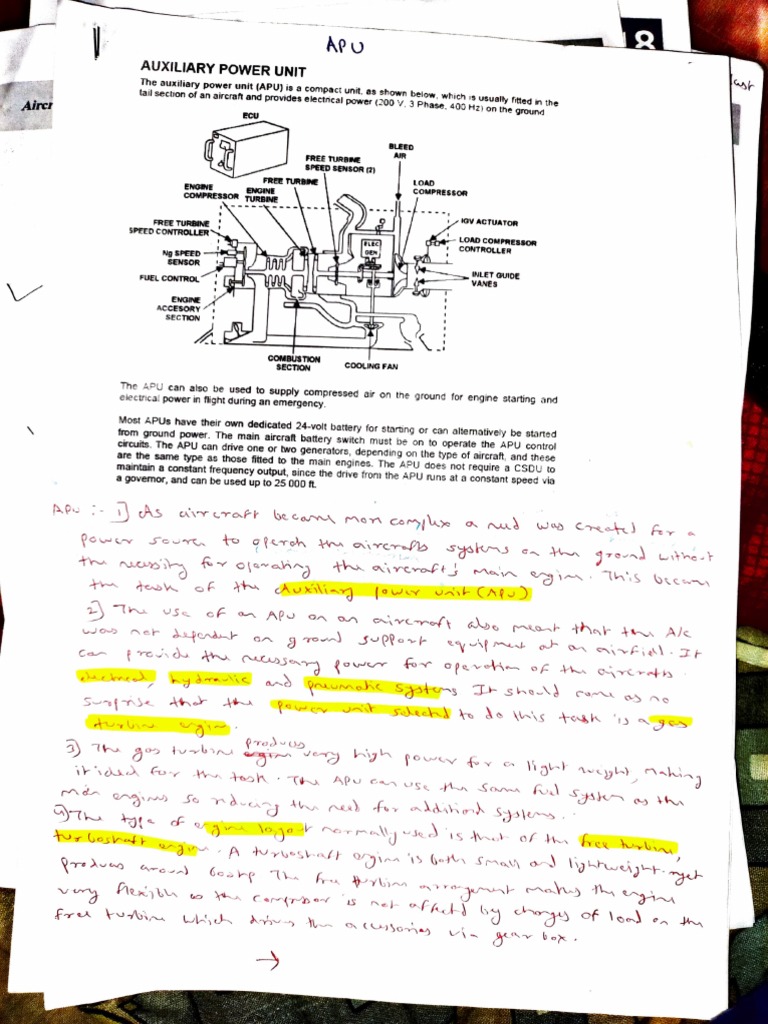 APU
8
cast
Aircr
AUXILIARY POWER UNIT
The auxiliary power unit (APU) is a compact unit, as shown below, which is usually fitted in the
tail section of an aircraft and provides electrical power (200 V, 3 Phase, 400 Hz) on the ground
ECU
BLEED
AIR
FREE TURBINE
SPEED SENSOR (2)
FREE TURBINE
LOAD
COMPRESSOR
ENGINE
COMPRESSOR
ENGINE
TURBINE
IGV ACTUATOR
FREE TURBINE
SPEED CONTROLLER
ELEC
GEN
LOAD COMPRESSOR
CONTROLLER
Ng SPEED
SENSOR
INLET GUIDE
VANES
FUEL CONTROL
ENGINE
ACCESORY
SECTION
COMBUSTION
SECTION
COOLING FAN
The APU can also be used to supply compressed air on the ground for engine starting and
electrical power in flight during an emergency.
Most APUs have their own dedicated 24-volt battery for starting or can alternatively be started
from ground power. The main aircraft battery switch must be on to operate the APU control
circuits. The APU can drive one or two generators, depending on the type of aircraft, and these
are the same type as those fitted to the main engines. The APU does not require a CSDU to
maintain a constant frequency output, since the drive from the APU runs at a constant speed via
a governor, and can be used up to 25 000 ft.
APU :- 1] As aircraft became more complex a need was created for a
power source to operate the aircrafts systems on the ground without
the necessity for operating the aircraft's main engine. This became
the task of the Auxiliary power unit (APU)
2] The use of an APU on an aircraft also meant that the A/c
was not dependent on ground support equipment at an airfield. It
can provide the necessary power for operation of the aircrafts
electrical, hydraulic and pneumatic systems It should come as no
surprise that the power unit selected to do this task is a gas
turbine engine.
3] The gas turbine produces very high power for a light weight, making
it ideal for the task. The APU can use the same fuel system as the
main engines so reducing the need for additional systems.
4) The type of engine layout normally used is that of the free turbine,
turboshaft engine. A turboshaft engine is both small and lightweight. yet
produces around 600 hp The free turbine arrangement makes the engine
very flexible as the compressor is not affected by changes of load on the
free turbine which drives the accessories via gear box.
→